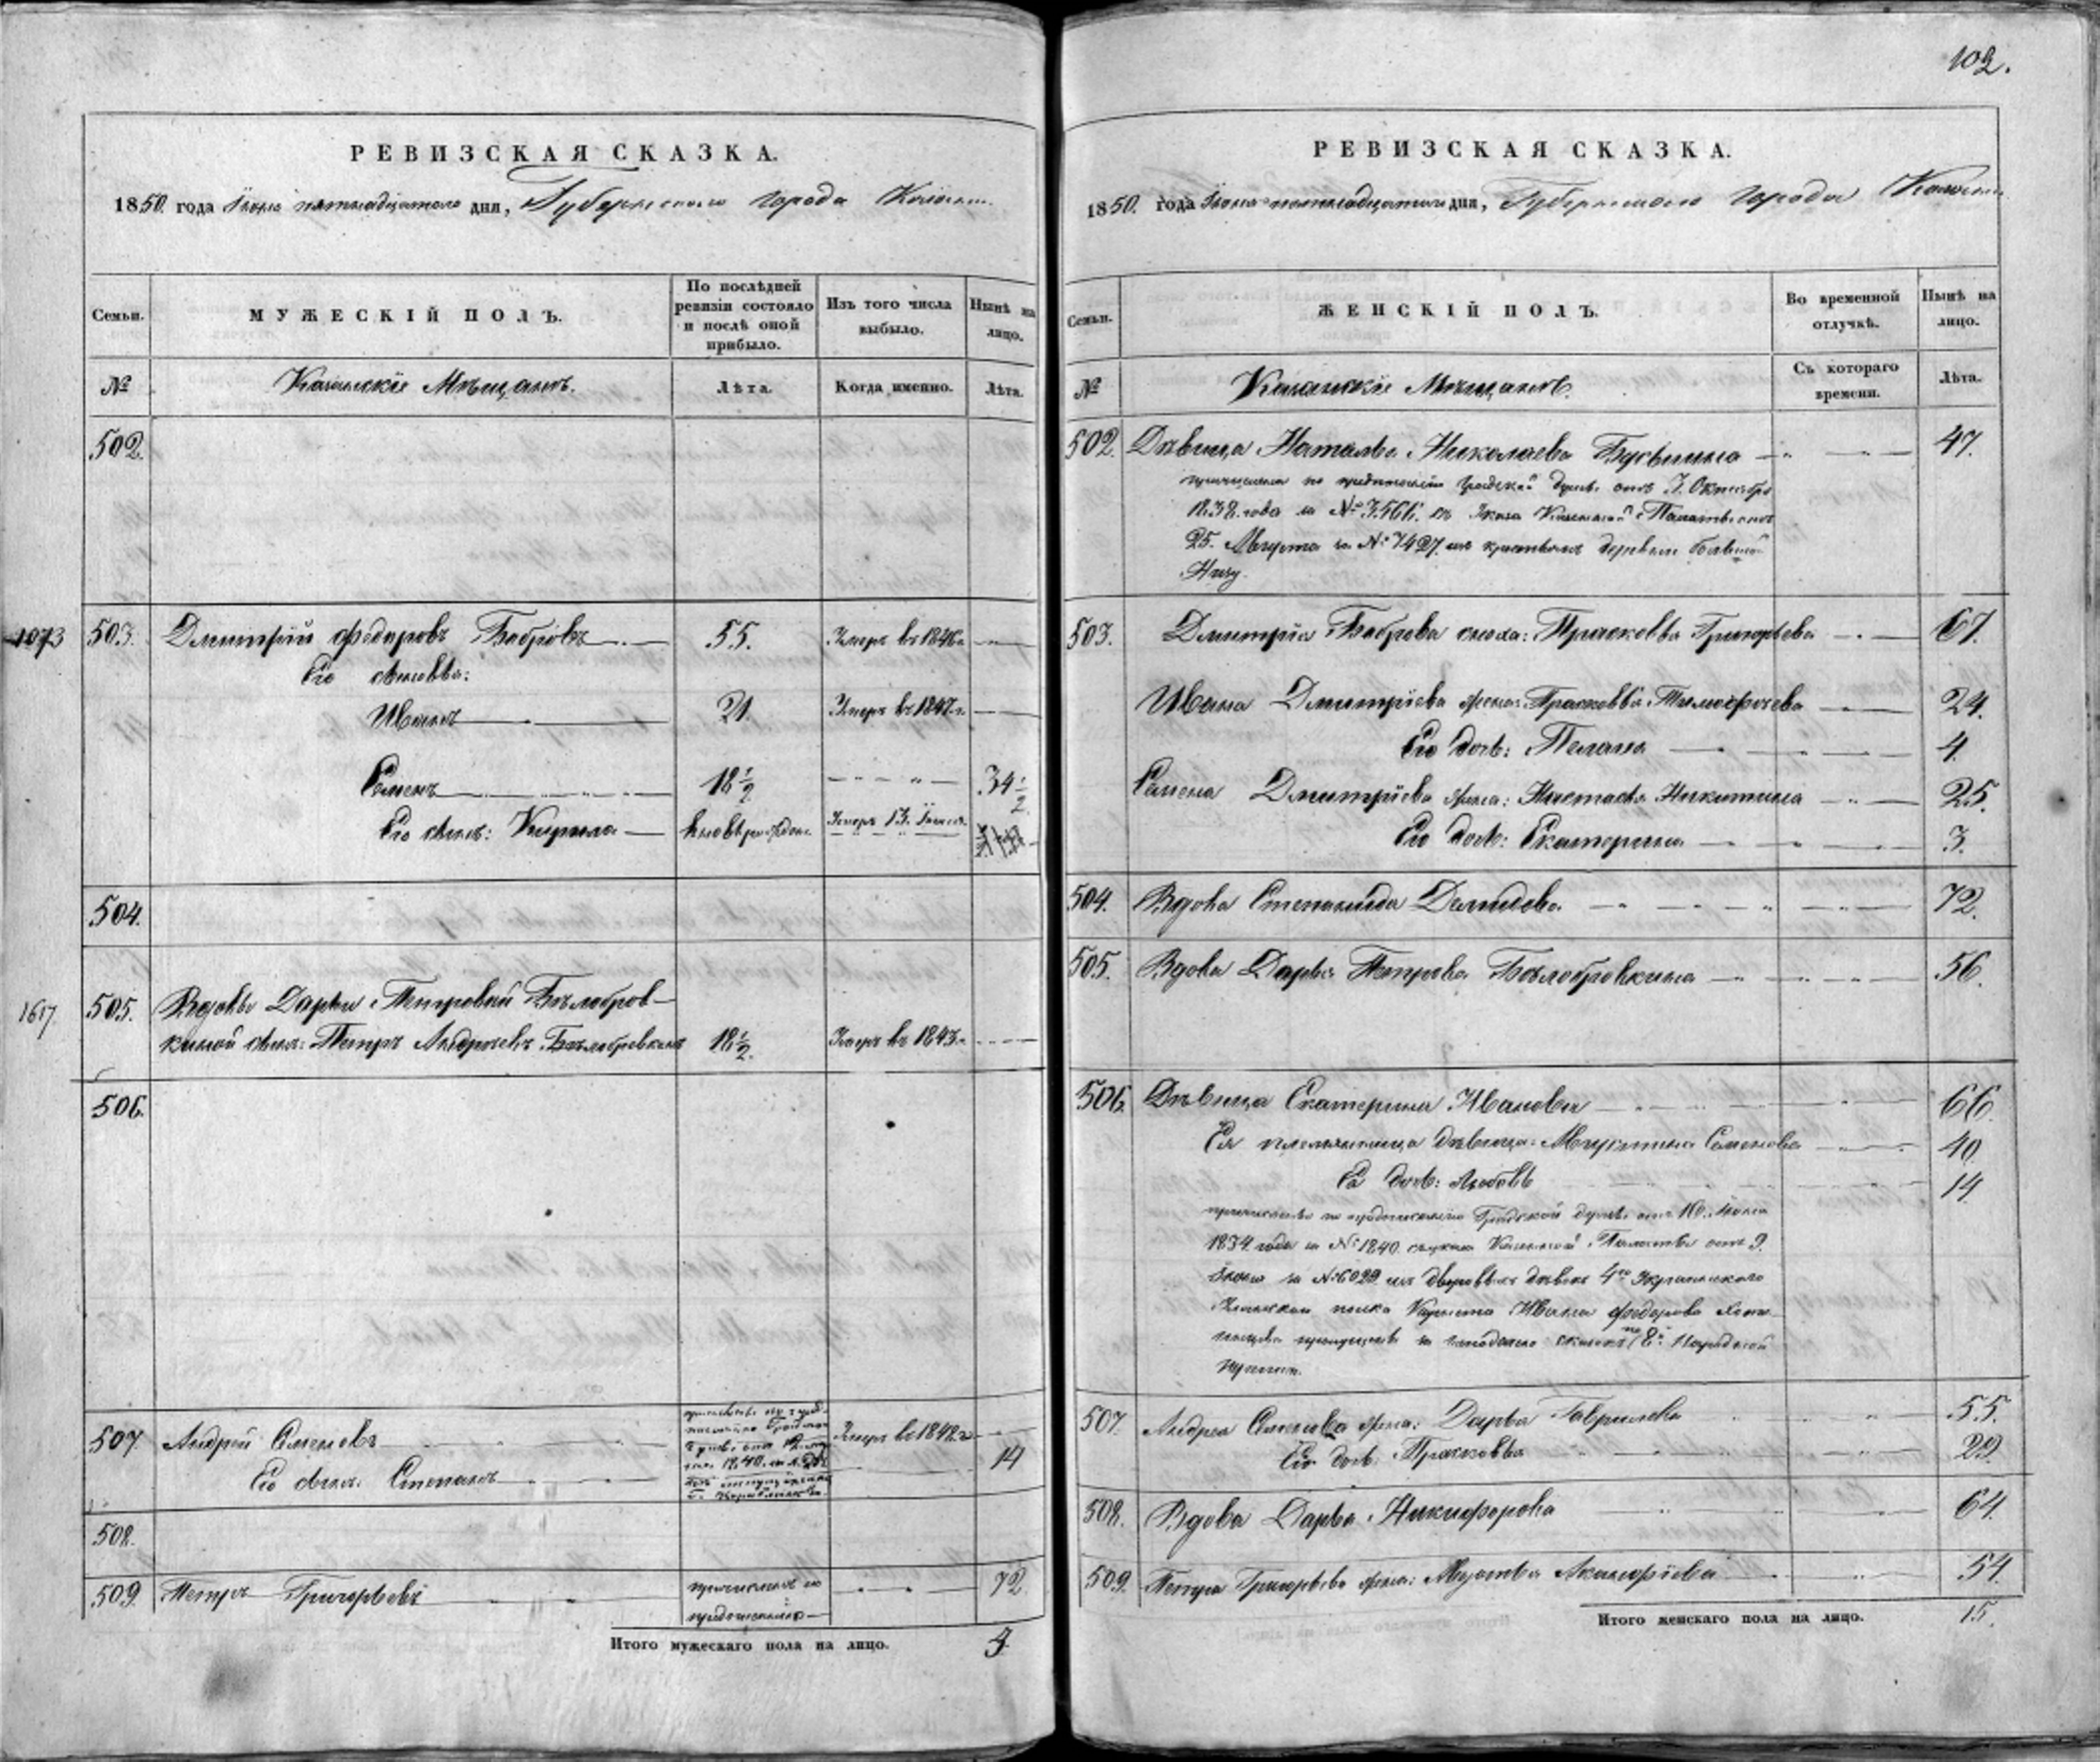 РЕВИЗСКАЯ СКАЗКА.
1850. года Іюня пятнадцатаго дня, Губернскаго города Казани
Семьи.
МУЖЕСКІЙ ПОЛЪ.
По послѣдней ревизіи состояло и послѣ оной прибыло.
Изъ того числа выбыло.
Нынѣ на лицо.
№
Казанскіе Мѣщане.
Лѣта.
Когда именно.
Лѣта.
502.
1073 503. Дмитрій Федоровъ Бобровъ 55. Умеръ въ 1846
Его сыновья:
Иванъ 21. Умеръ въ 1847 г.
Семенъ 18 1/2 34 1/2
Его сынъ: Кирила вновь рожден. Умеръ 13.
504.
1617. 505. Вдовы Дарьи Петровой Бѣлобров-
киной сынъ: Петръ Андреевъ Бѣлобровкинъ 18 1/2. Умеръ въ 1843 г.
506.
507. Андрей Семеновъ Умеръ въ 1848 г.
Его сынъ Степанъ 14
508.
509. Петръ Григорьевъ причисленъ по 72
предписанію
Итого мужескаго пола на лицо. 3
102.
РЕВИЗСКАЯ СКАЗКА.
1850. года Іюня пятнадцатаго дня, Губернскаго города Казани
Семьи.
ЖЕНСКІЙ ПОЛЪ.
Во временной отлучкѣ.
Нынѣ на лицо.
№
Казанскіе Мѣщане.
Съ котораго времени.
Лѣта.
502. Дѣвица Наталья Николаева 47.
по предписанію Градской Думы отъ 7. Октября
1838. года за № 3566. въ Указа Казенной Палаты отъ
25. Августа за № 7427. изъ крестьянъ деревни
503. Дмитрія Боброва сноха: Прасковья Григорьева 67.
Ивана Дмитріева жена: Прасковья Тимофѣева 24.
Его дочь: Пелагея 4.
Семена Дмитріева жена: Настасья Никитина 25.
Его дочь: Екатерина 3.
504. Вдова Степанида Демидова 72.
505. Вдова Дарья Петрова Бѣлобровкина 56.
506. Дѣвица Екатерина Иванова 66.
Ея племянница дѣвица: Семенова 40
Ея дочь: Любовь 14
по предписанію Градской Думы отъ 16. Іюля
1834. года за № 1840. Казенной Палаты отъ 9.
Іюля за № 6029. изъ дворовыхъ дѣвокъ 4го Украинскаго
Уланскаго полка Ивана Федорова
по 8й Народной
507. Андрея Семенова жена: Дарья Гаврилова 55.
Его дочь Прасковья 29.
508. Вдова Дарья Никифорова 64.
509. Петра Григорьева жена: 54.
Итого женскаго пола на лицо. 15.